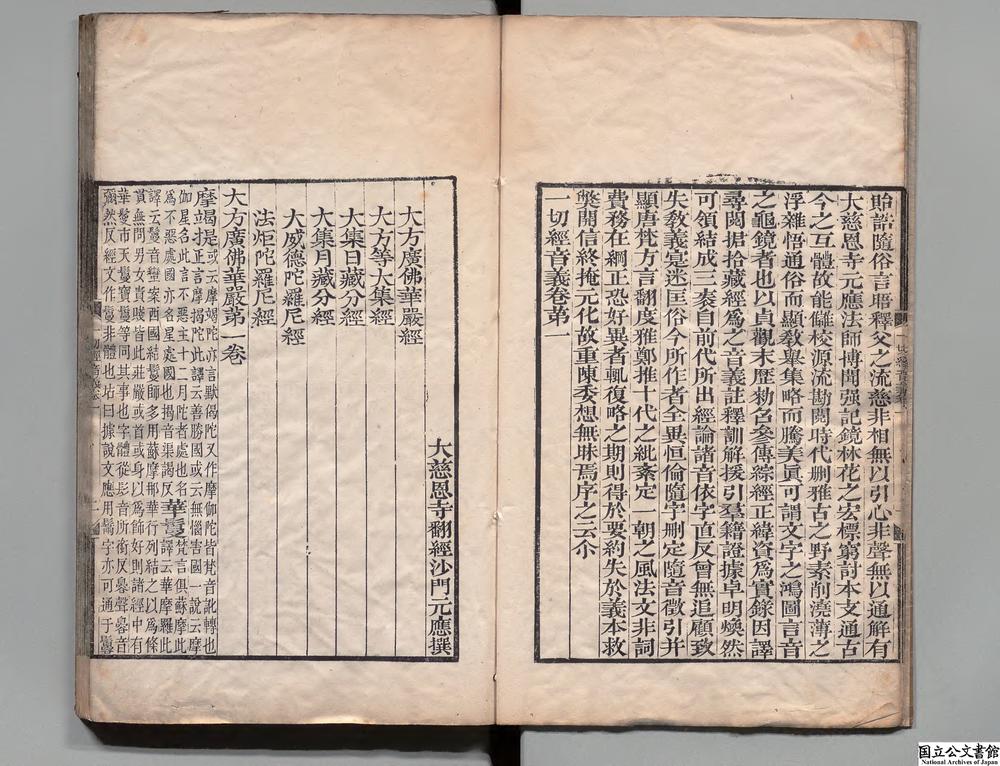 貽語隨俗言唔釋父之流慈非相無以引心非聲無以通解有
大慈恩寺元應法師博聞强記鏡林花之宏標窮討本支通古
今之互體故能讎校源流勘閱時代删雅古之野素削澆薄之
浮雜悟通俗而顯教舉集略而騰美眞可謂文字之鴻圖言音
之龜鏡者也以貞觀末歷勑召參傳綜經正緯資爲實錄因譯
尋閱捃拾藏經爲之音義註釋訓解援引羣籍證據卓明煥然
可領結成三袠自前代所出經論諸音依字直反曾無追顧致
失教義寔迷匡俗今所作者全異恒倫隨字删定隨音徵引并
顯唐梵方言翻度雅鄭推十代之紕紊定一朝之風法文非詞
費務在綱正恐好異者輒復略之期則得於要約失於義本救
弊開信終掩元化故重陳委想無昧焉序之云尒
一切經音義卷第一
大慈恩寺翻經沙門元應撰
大方廣佛華嚴經
大方等大集經
大集日藏分經
大集月藏分經
大威德陀羅尼經
法炬陀羅尼經
大方廣佛華嚴第一卷
摩竭提或云摩竭陀亦言默偈陀又作摩伽陀皆梵音訛轉也
正言摩揭陀此譯云善勝國或云無惱害國一說云摩
伽星名此言不惡主十二月陀者處也名
爲不惡處國亦名星處國也揭音渠謁反華鬘梵言俱蘇摩此
譯云華摩羅此
譯云鬘音蠻案西國結鬘師多用蘇摩那華行列結之以爲條
貫無問男女貴賤皆此莊嚴或首或身以爲飾好則諸經中有
華鬘市天鬘寶鬘等同其事也字體從髟音所銜反㝱聲㝱音
彌然反經文作鬘非體也坫曰據說文應用鬗字亦可通于鬘
国立公文書館
National Archives of Japan